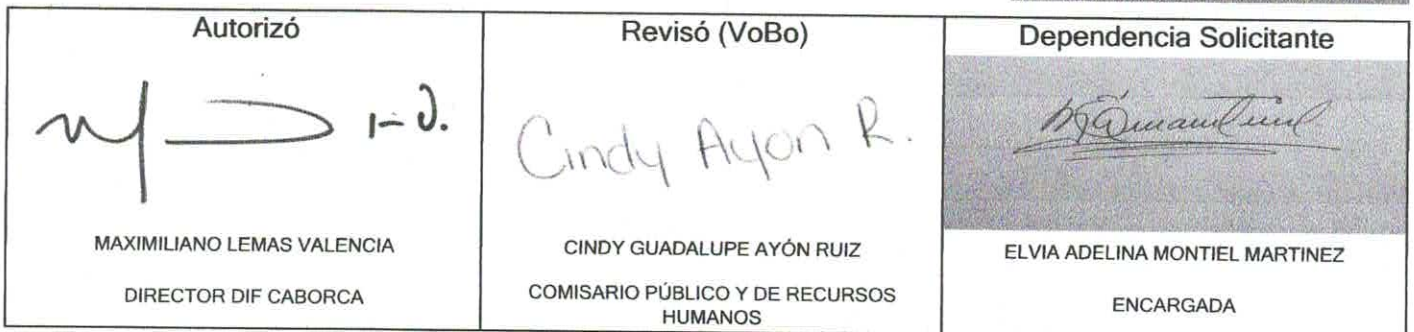 Autorizó
Revisó (VoBo)
Dependencia Solicitante
Cindy Ayon R.
MAXIMILIANO LEMAS VALENCIA
CINDY GUADALUPE AYÓN RUIZ
ELVIA ADELINA MONTIEL MARTINEZ
DIRECTOR DIF CABORCA
COMISARIO PÚBLICO Y DE RECURSOS
HUMANOS
ENCARGADA